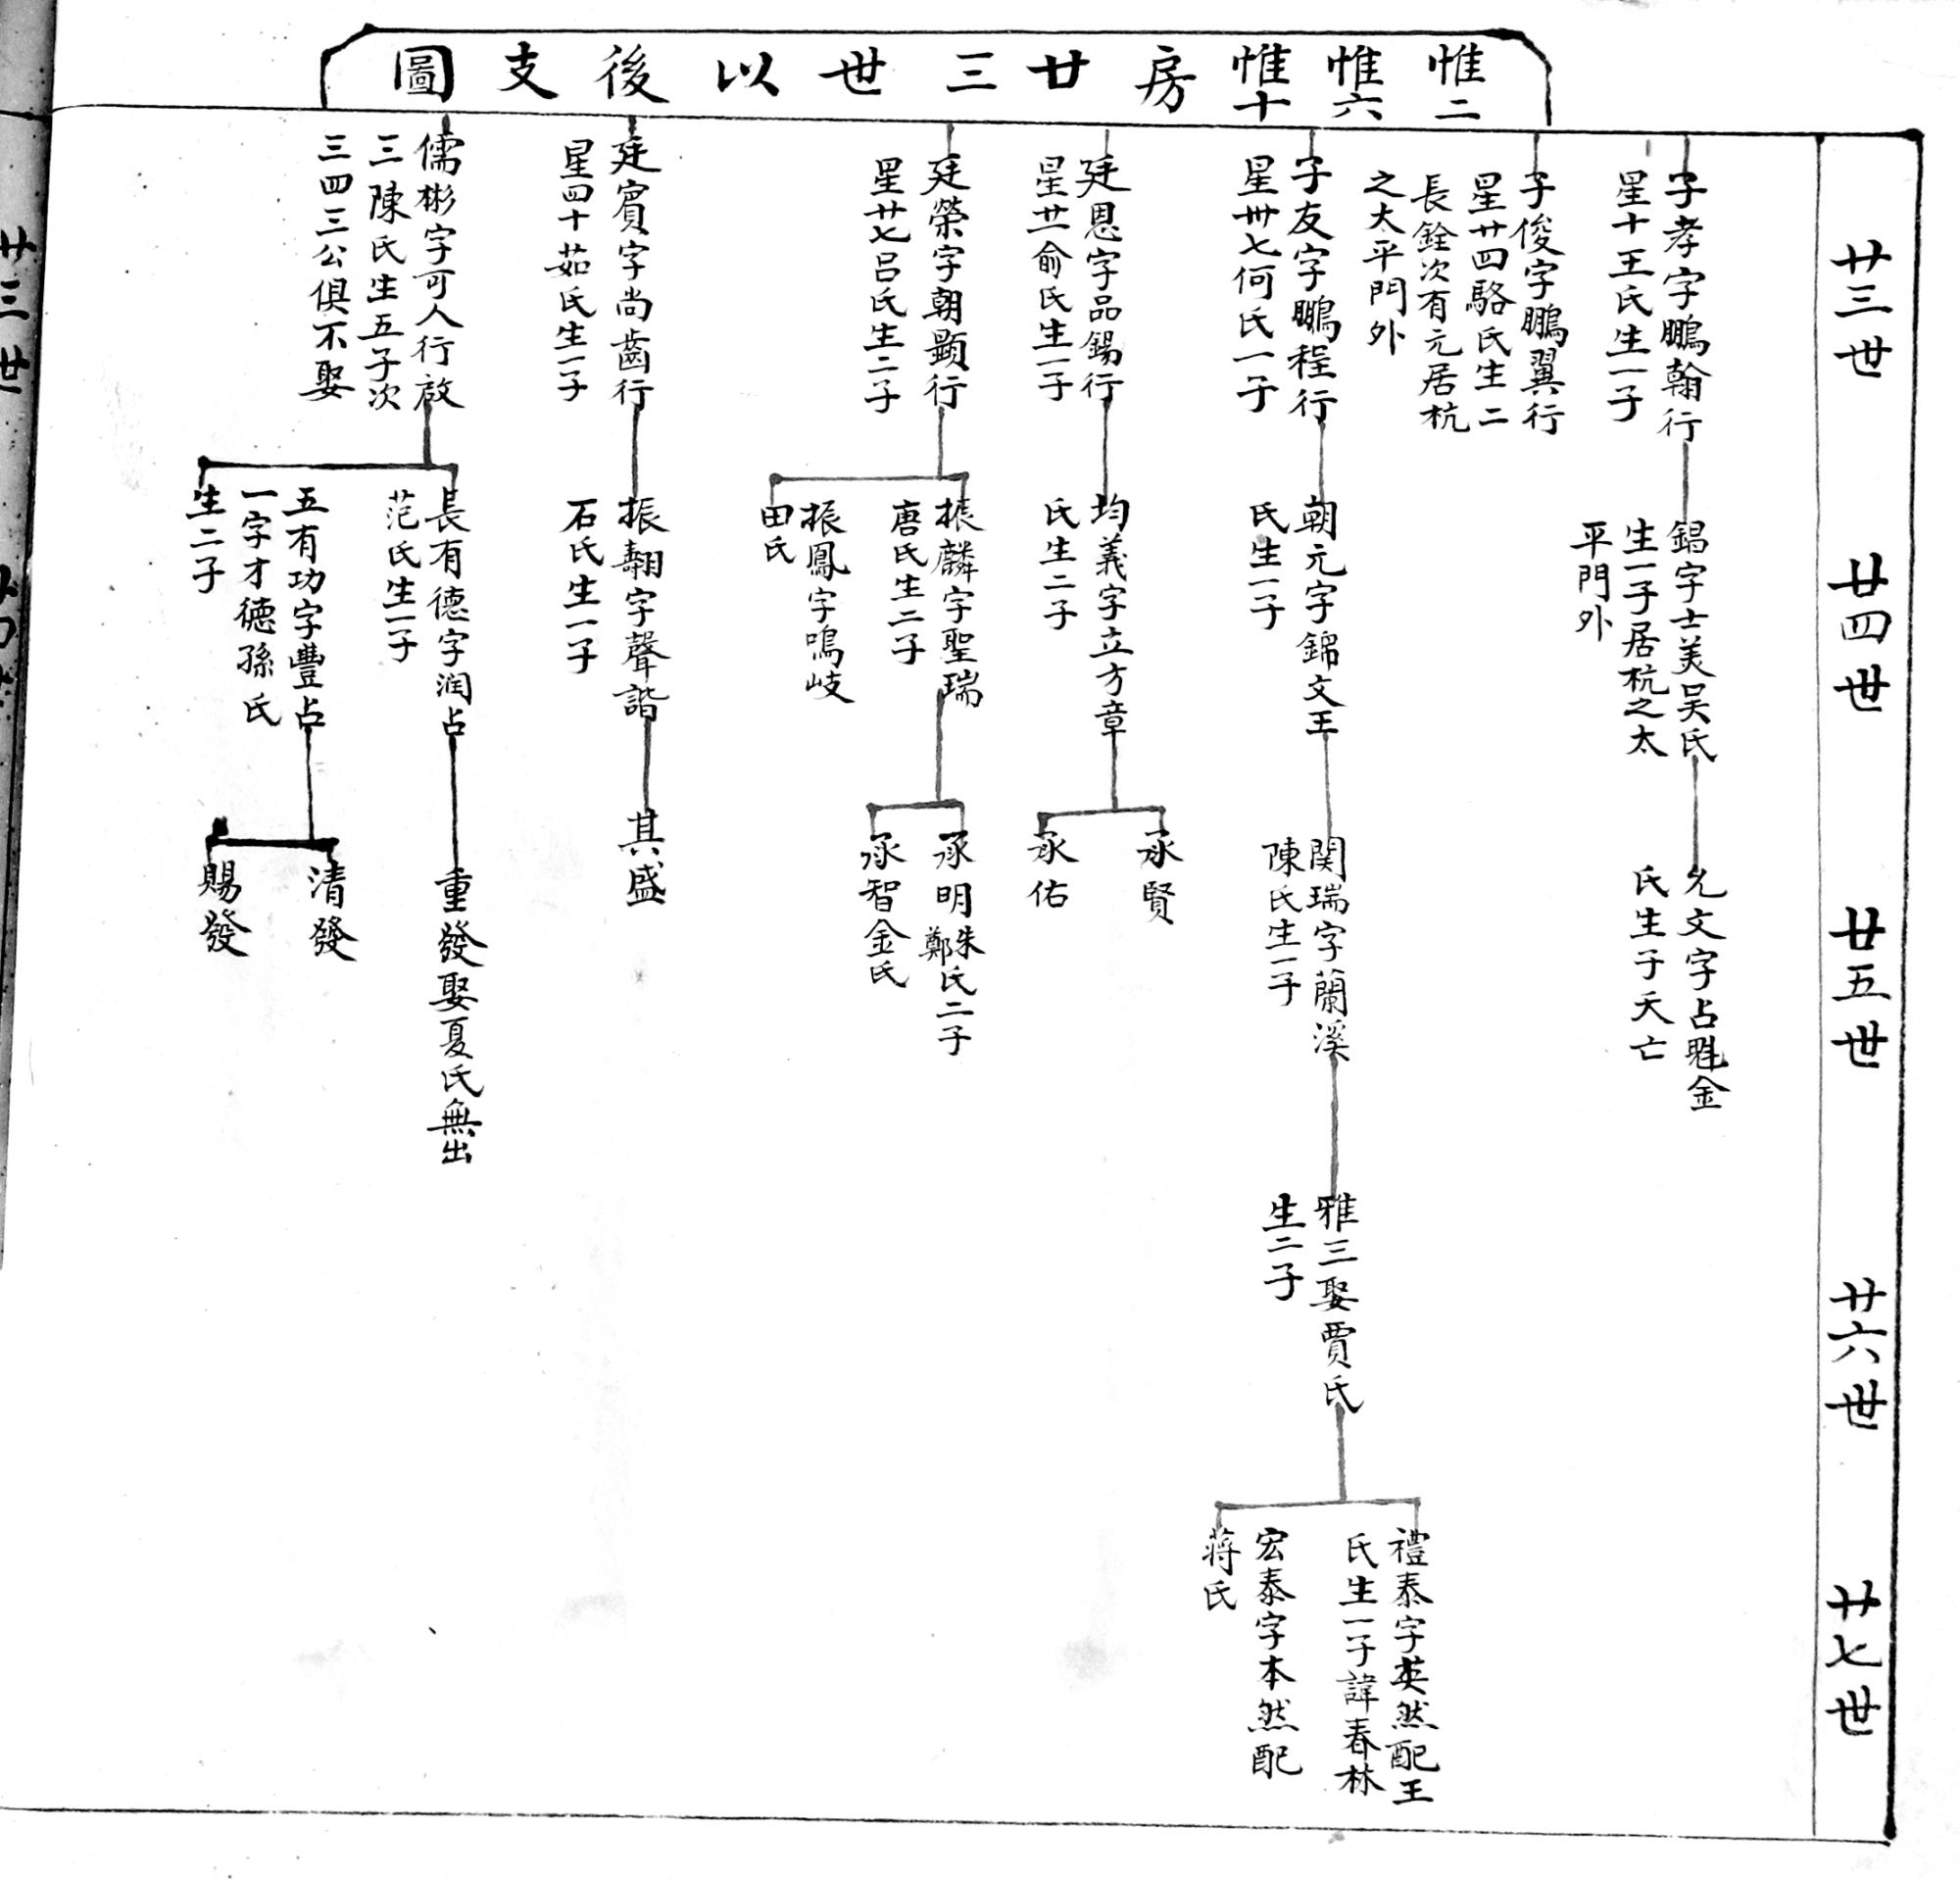 惟二惟六惟十房廿三世以後支圖
廿三世
廿四世
廿五世
廿六世
廿七世
子孝字鵬翰行
星十王氏生一子
子俊字鵬翼行
星廿四駱氏生二
長銓次有元居杭
之太平門外
子友字鵬程行
星卅七何氏一子
廷恩字品錫行
星廿一俞氏生一子
廷榮字朝顯行
星廿七呂氏生二子
廷賓字尚齒行
星四十茹氏生一子
儒彬字可人行啟
三陳氏生五子次
三四三公俱不娶
錩字士美吴氏
生一子居杭之太
平門外
朝元字錦文王
氏生一子
均義字立方章
氏生二子
振麟字聖瑞
唐氏生二子
振鳳字鳴岐
田氏
振翿字聲諧
石氏生一子
長有德字润占
范氏生一子
五有功字豐占
一字才德孫氏
生二子
允文字占魁金
氏生子夭亡
関瑞字蘭溪
陳氏生一子
承賢
承佑
承明朱鄭氏二子
承智金氏
其盛
重發娶夏氏無出
清發
賜發
雅三娶賈氏
生二子
禮泰字英然配王
氏生一子諱春林
宏泰字本然配
蔣氏
廿三世